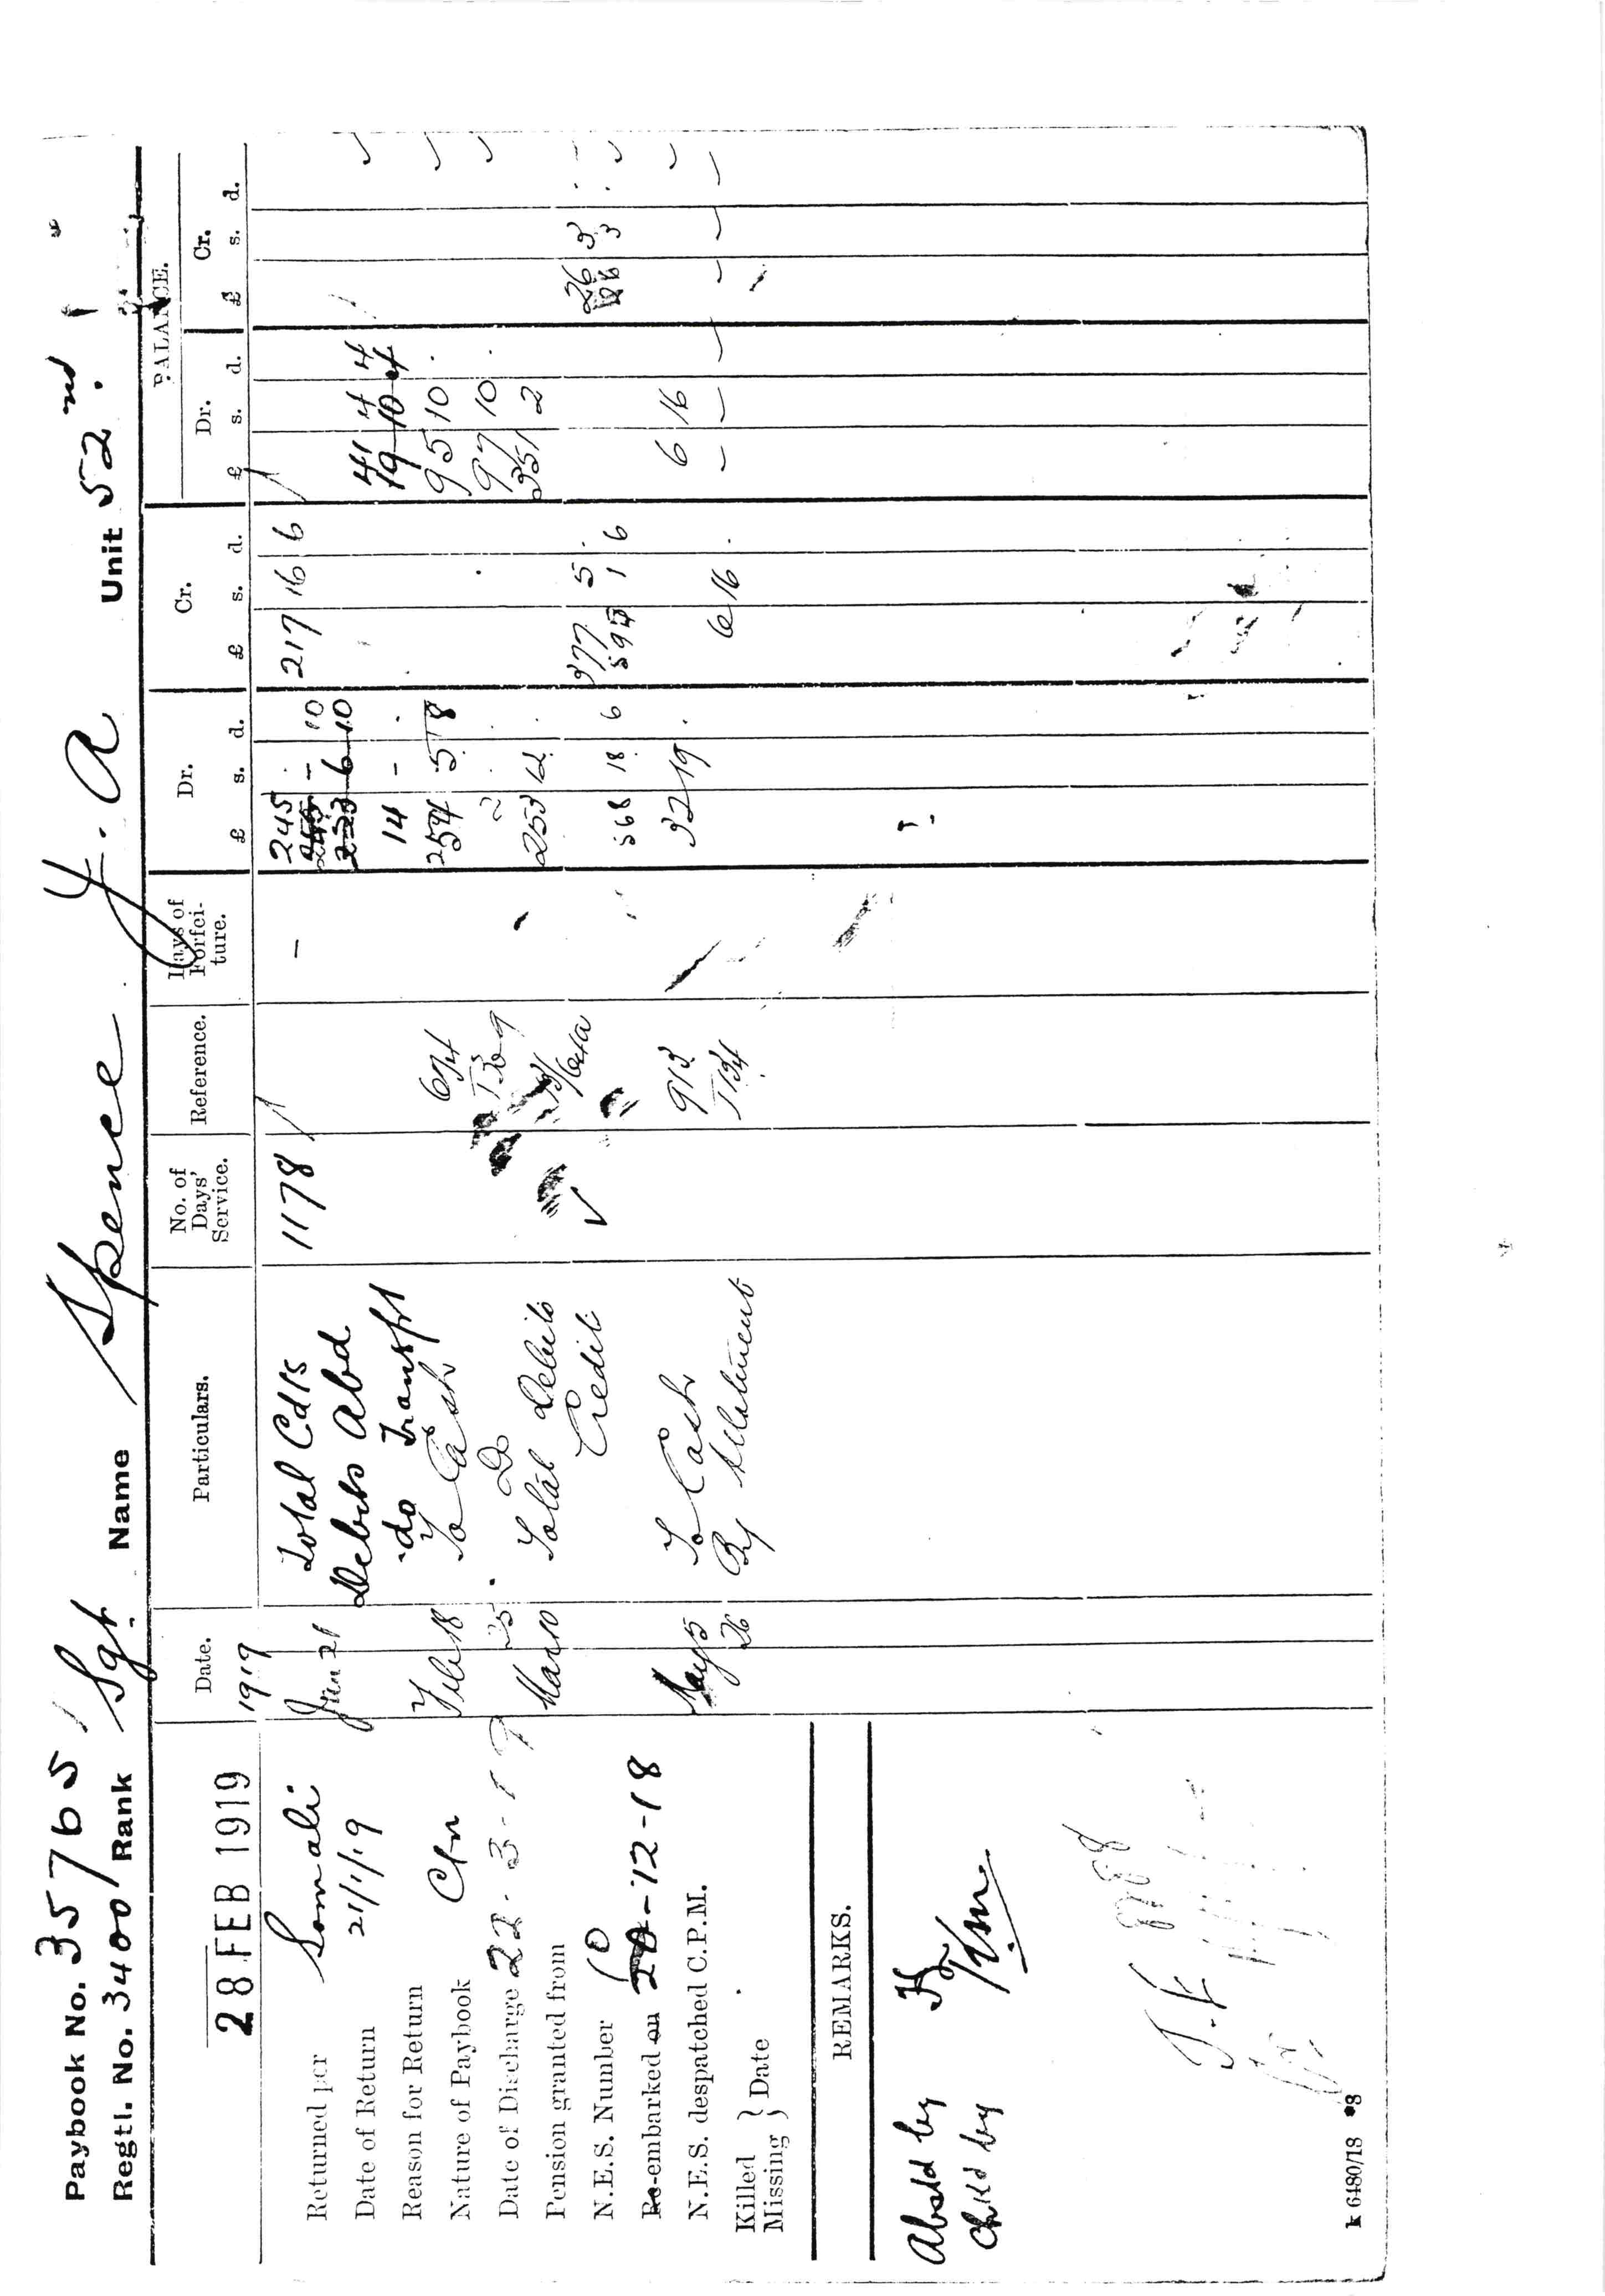 Paybook No. 35765
Regtl. No. 3400 Rank Sgt. Name Spence J. A Unit 52nd.
28 FEB 1919
Returned per Somali
Date of Return 21/1/19
Reason for Return
Nature of Paybook Ctn
Date of Discharge 22-3-19
Pension granted from
N.E.S. Number
Re-embarked on 20-12-18
N.E.S. despatched C.P.M.
Killed } Date
Missing
REMARKS.
Abstd by
Chkd by
J.K
k 6480/18
Date. Particulars. No. of Days' Service. Reference. Days of Forfeiture. Dr. Cr. BALANCE.
Dr. Cr.
£ s. d. £ s. d. £ s. d. £ s. d.
1919
Jan 21 Total Cdts 1178 - 245 - 10 217 16 6
Debits Abd 223 6 10 41 4 4
do Transpt 14 - 19 10 4
Feb 18 To Cash 674 254 5 8 95 10
25 Do 97 10
Mar 10 Total Debits 253 12 351 2
Credit 377 5 26 3
568 18 6 594 1 6
May 5 To Cash 913 32 19 6 16
26 By Allotment 6 16